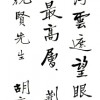 雲遮望眼
最高層 荊
賢先生 胡